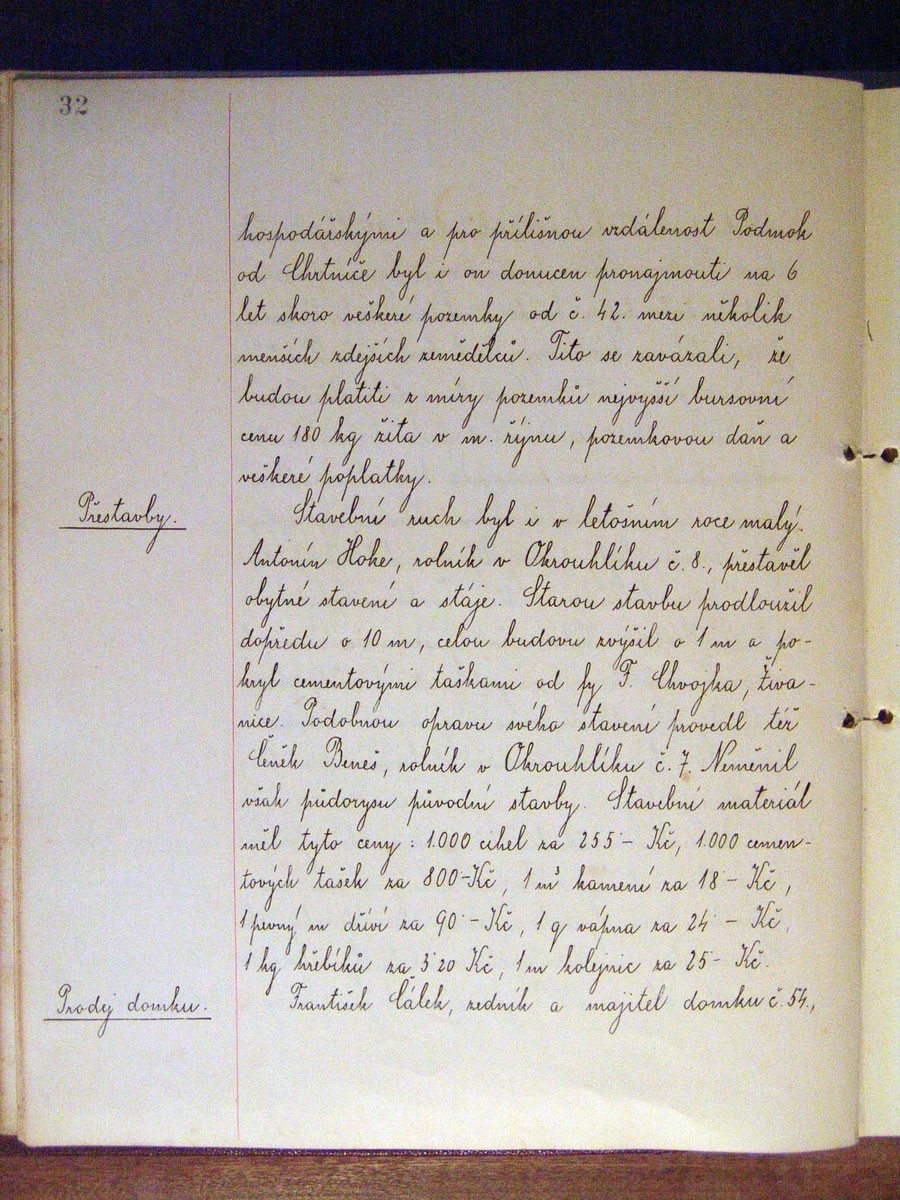 32
hospodářskými a pro přílišnou vzdálenost Podmok
od Chrtníče byl i on donucen pronajmouti na 6
let skoro veškeré pozemky od č. 42. mezi několik
menších zdejších zemědělců. Tito se zavázali, že
budou platiti z míry pozemků nejvyšší bursovní
cenu 180 kg žita v m. říjnu, pozemkovou daň a
veškeré poplatky.
Přestavby.
Stavební ruch byl i v letošním roce malý.
Antonín Hoke, rolník v Okrouhlíku č. 8., přestavěl
obytné stavení a stáje. Starou stavbu prodloužil
dopředu o 10 m, celou budovu zvýšil o 1 m a po-
kryl cementovými taškami od fy F. Chvojka, Živa-
nice. Podobnou opravu svého stavení provedl též
Čeněk Beneš, rolník v Okrouhlíku č. 7. Neměnil
však půdorysu původní stavby. Stavební materiál
měl tyto ceny: 1.000 cihel za 255·- Kč, 1.000 cemen-
tových tašek za 800·- Kč, 1 m³ kamení za 18·- Kč,
1 pevný m dříví za 90·- Kč, 1 q vápna za 24·- Kč,
1 kg hřebíků za 3·20 Kč, 1 m kolejnic za 25·- Kč.
Prodej domku.
František Čálek, zedník a majitel domku č. 54.,